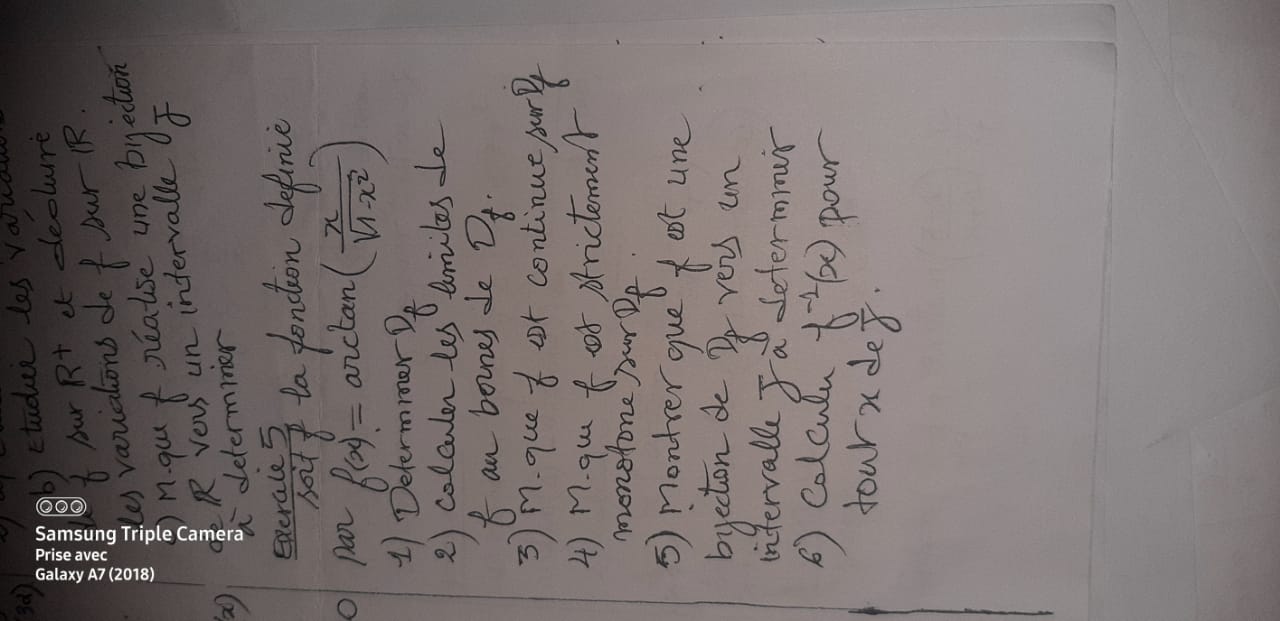 b) Etudie les
f sur R+ et déduire
les variations de f sur IR.
c) M.que f réalise une bijection
de IR vers un intervalle J
à determiner
Exercice 5
soit f la fonction definie
par f(x) = arctan(x/√(1-x²))
1) Determiner Df
2) calculer les limites de
f au bornes de Df.
3) M.que f est continue sur Df
4) M.que f est strictement
monotone sur Df.
5) Montrer que f est une
bijection de Df vers un
intervalle J à determiner
6) Calculer f⁻¹(x) pour
tout x de J.
Samsung Triple Camera
Prise avec
Galaxy A7 (2018)